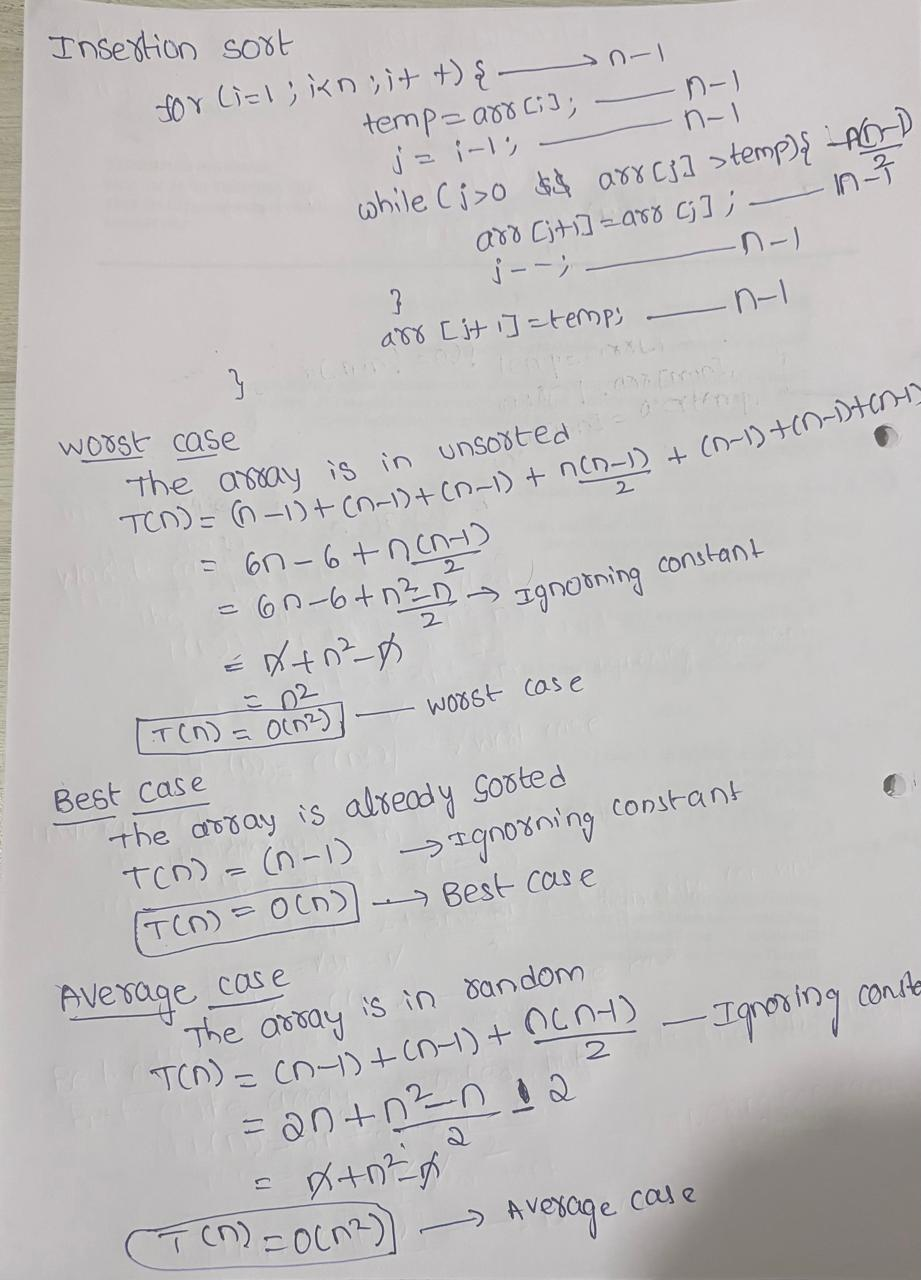 Insertion sort
for (i=1 ; i<n ; i++) { → n-1
temp = arr[i]; — n-1
j = i-1; — n-1
while (j>0 && arr[j] > temp){ n(n-1)/2
arr[j+1] = arr[j]; — n-1
j--; — n-1
}
arr[j+1] = temp; — n-1
}
worst case
The array is in unsorted
T(n) = (n-1)+(n-1)+(n-1)+ n(n-1)/2 + (n-1)+(n-1)+(n-1)
= 6n-6+n(n-1)/2
= 6n-6+n²-n/2 → Ignorning constant
= n+n²-n
= n²
T(n) = O(n²) — worst case
Best case
the array is already sorted
T(n) = (n-1) → Ignorning constant
T(n) = O(n) → Best case
Average case
The array is in random
T(n) = (n-1)+(n-1)+ n(n-1)/2 — Ignoring
= 2n+n²-n/2 - 2
= n+n²-n
T(n) = O(n²) → Average case